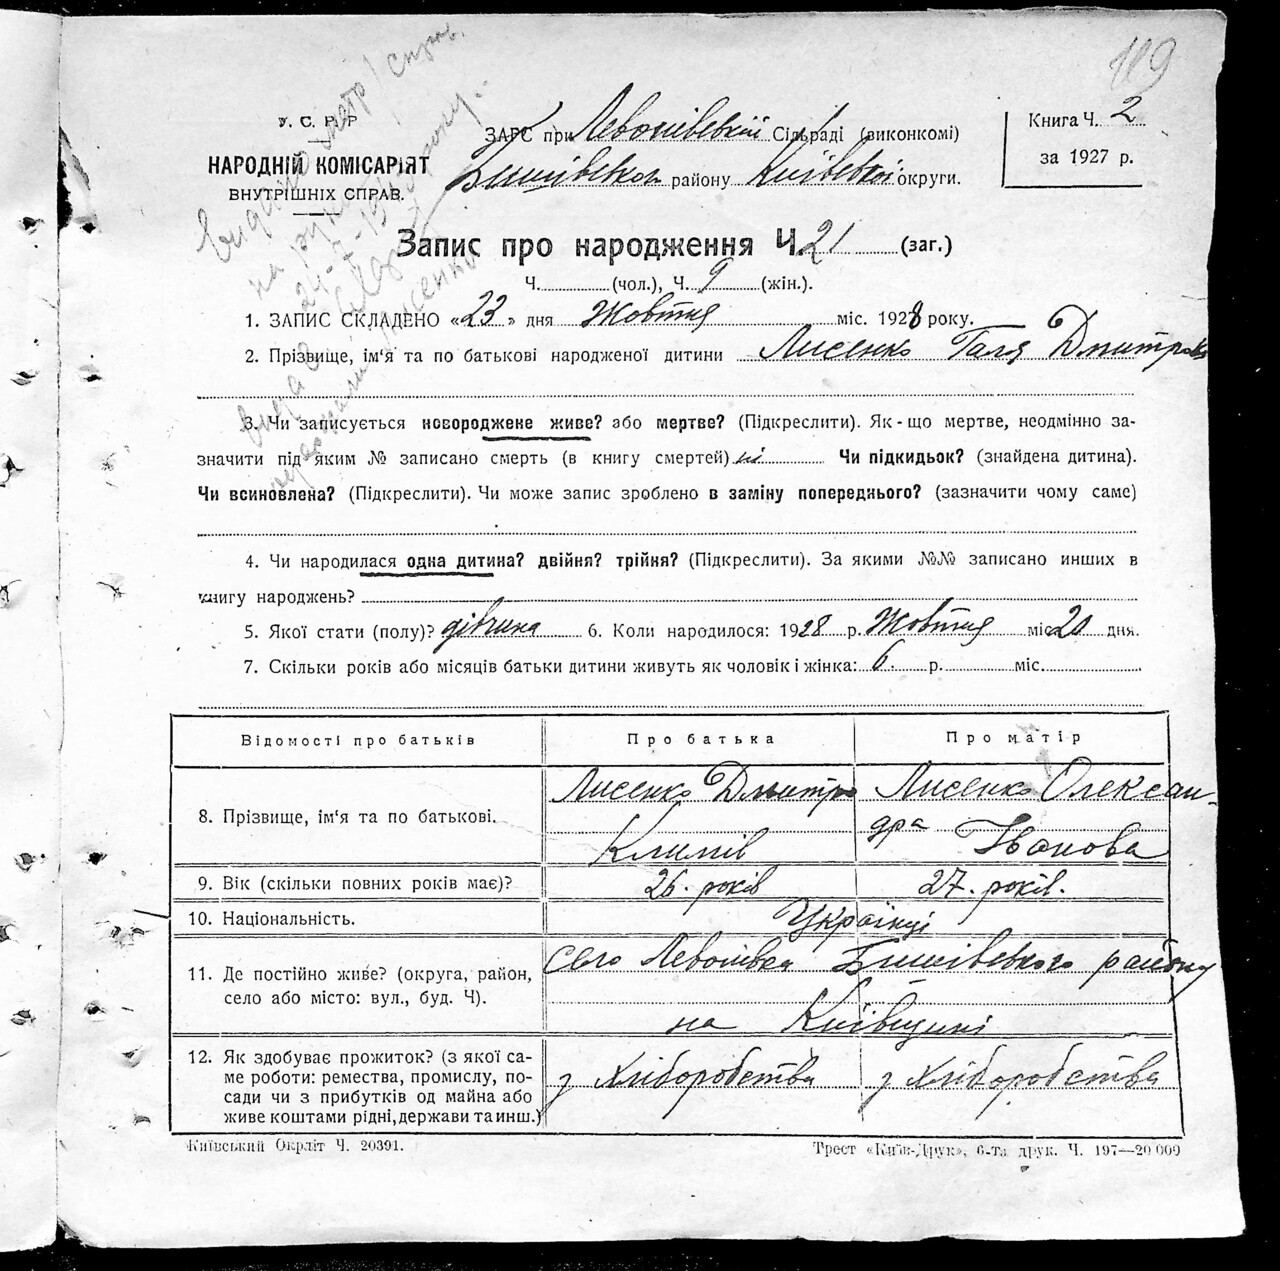 119
У. С. Р. Р
НАРОДНІЙ КОМІСАРІЯТ
ВНУТРІШНІХ СПРАВ.
ЗАГС при Левонівській Сільраді (виконкомі)
Бишівського району Київської округи.
Книга Ч. 2
за 1927 р.
Запис про народження Ч. 21 (заг.)
Ч. (чол.), Ч. 9 (жін.).
1. ЗАПИС СКЛАДЕНО «23» дня Жовтня міс. 1928 року.
2. Прізвище, ім'я та по батькові народженої дитини Лисенко Галя Дмитров
3. Чи записується новороджене живе? або мертве? (Підкреслити). Як-що мертве, неодмінно за-
значити під яким № записано смерть (в книгу смертей) ні Чи підкидьок? (знайдена дитина).
Чи всиновлена? (Підкреслити). Чи може запис зроблено в заміну попереднього? (зазначити чому саме)
4. Чи народилася одна дитина? двійня? трійня? (Підкреслити). За якими №№ записано инших в
книгу народжень?
5. Якої стати (полу)? дівчина 6. Коли народилося: 1928 р. Жовтня міс. 20 дня.
7. Скільки років або місяців батьки дитини живуть як чоловік і жінка: 6 р. міс.
Відомості про батьків
Про батька
Про матір
8. Прізвище, ім'я та по батькові.
Лисенко Дмитро
Климів
Лисенко Олексан-
дра Іванова
9. Вік (скільки повних років має)?
26. років
27. років.
10. Національність.
Українці
11. Де постійно живе? (округа, район,
село або місто: вул., буд. Ч).
Село Левонівка Бишівського району
на Київщині
12. Як здобуває прожиток? (з якої са-
ме роботи: ремества, промислу, по-
сади чи з прибутків од майна або
живе коштами рідні, держави та инш.)
з Хліборобства
з Хліборобства
Київський Окрліт Ч. 20391.
Трест «Київ-Друк», 6-та друк. Ч. 197—20 000